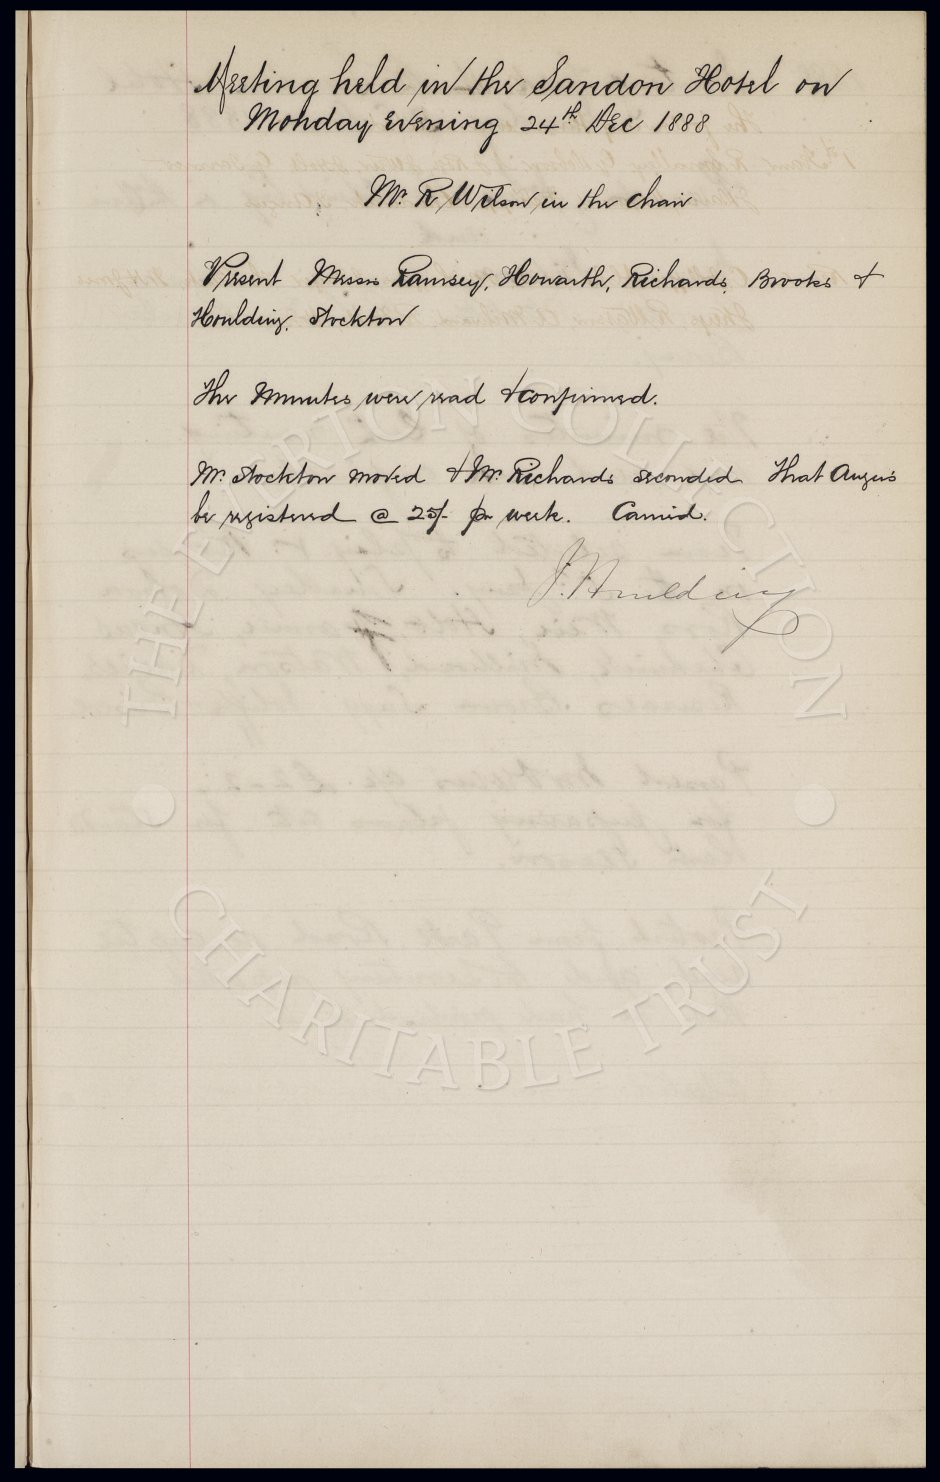 Meeting held in the Sandon Hotel on
Monday Evening 24th Dec 1888
Mr. R. Wilson in the chair
Present Messrs Ramsey, Howarth, Richards, Brooks &
Houlding, Stockton
The Minutes were read & confirmed.
Mr. Stockton moved & Mr. Richards seconded That Angus
be registered @ 25/- per week. Carried.
J. Houlding
THE EVERTON COLLECTION
CHARITABLE TRUST